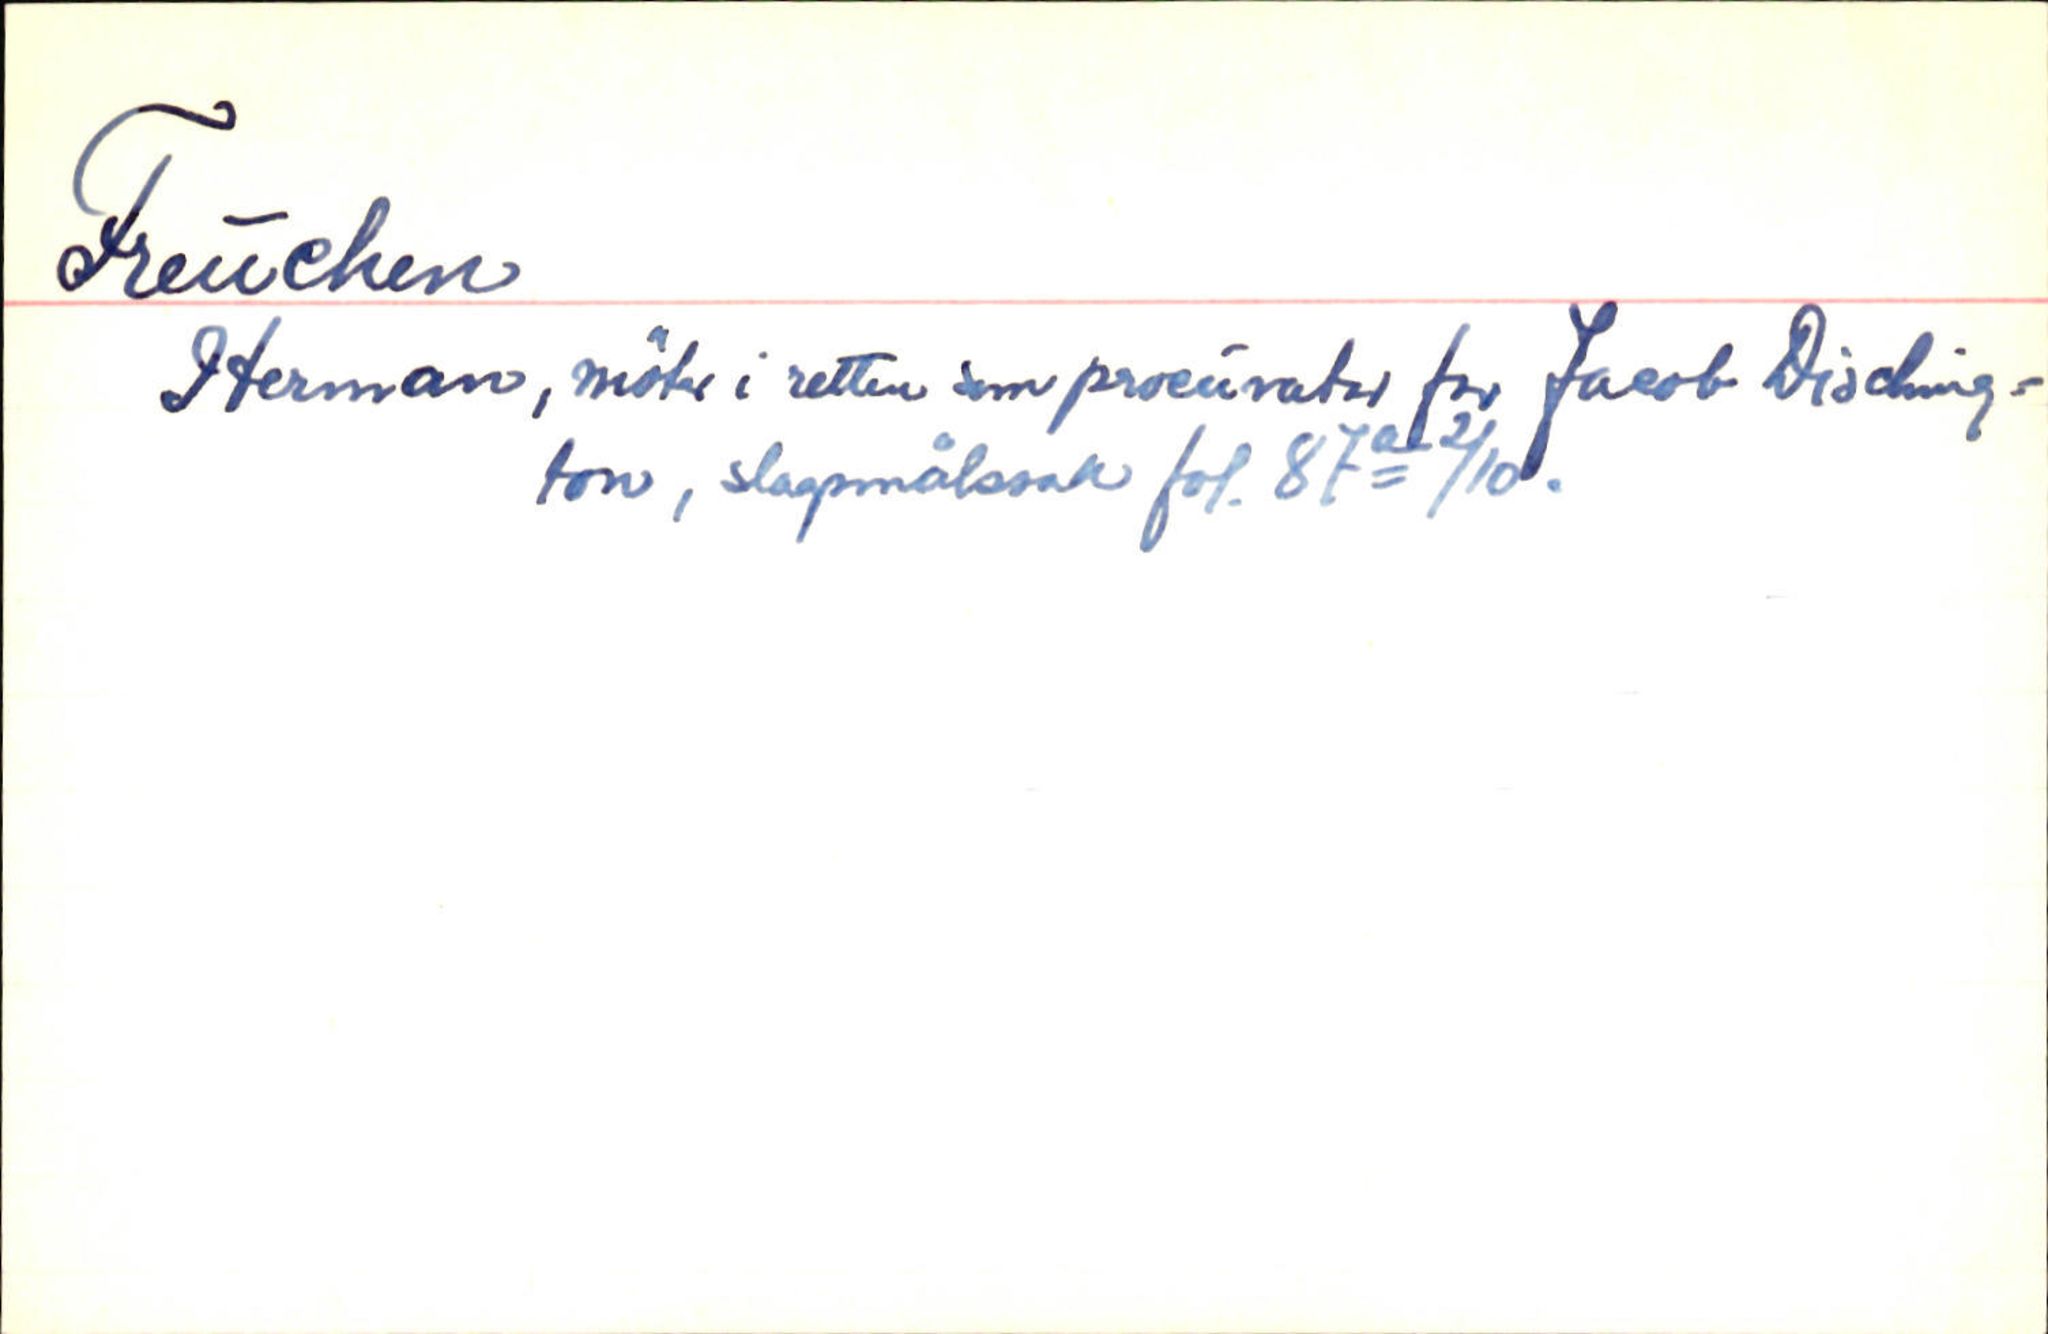 Freuchen
Herman, möter i retten som procurator for Jacob Disching-
ton, slagsmålssak fol. 87a 2/10.